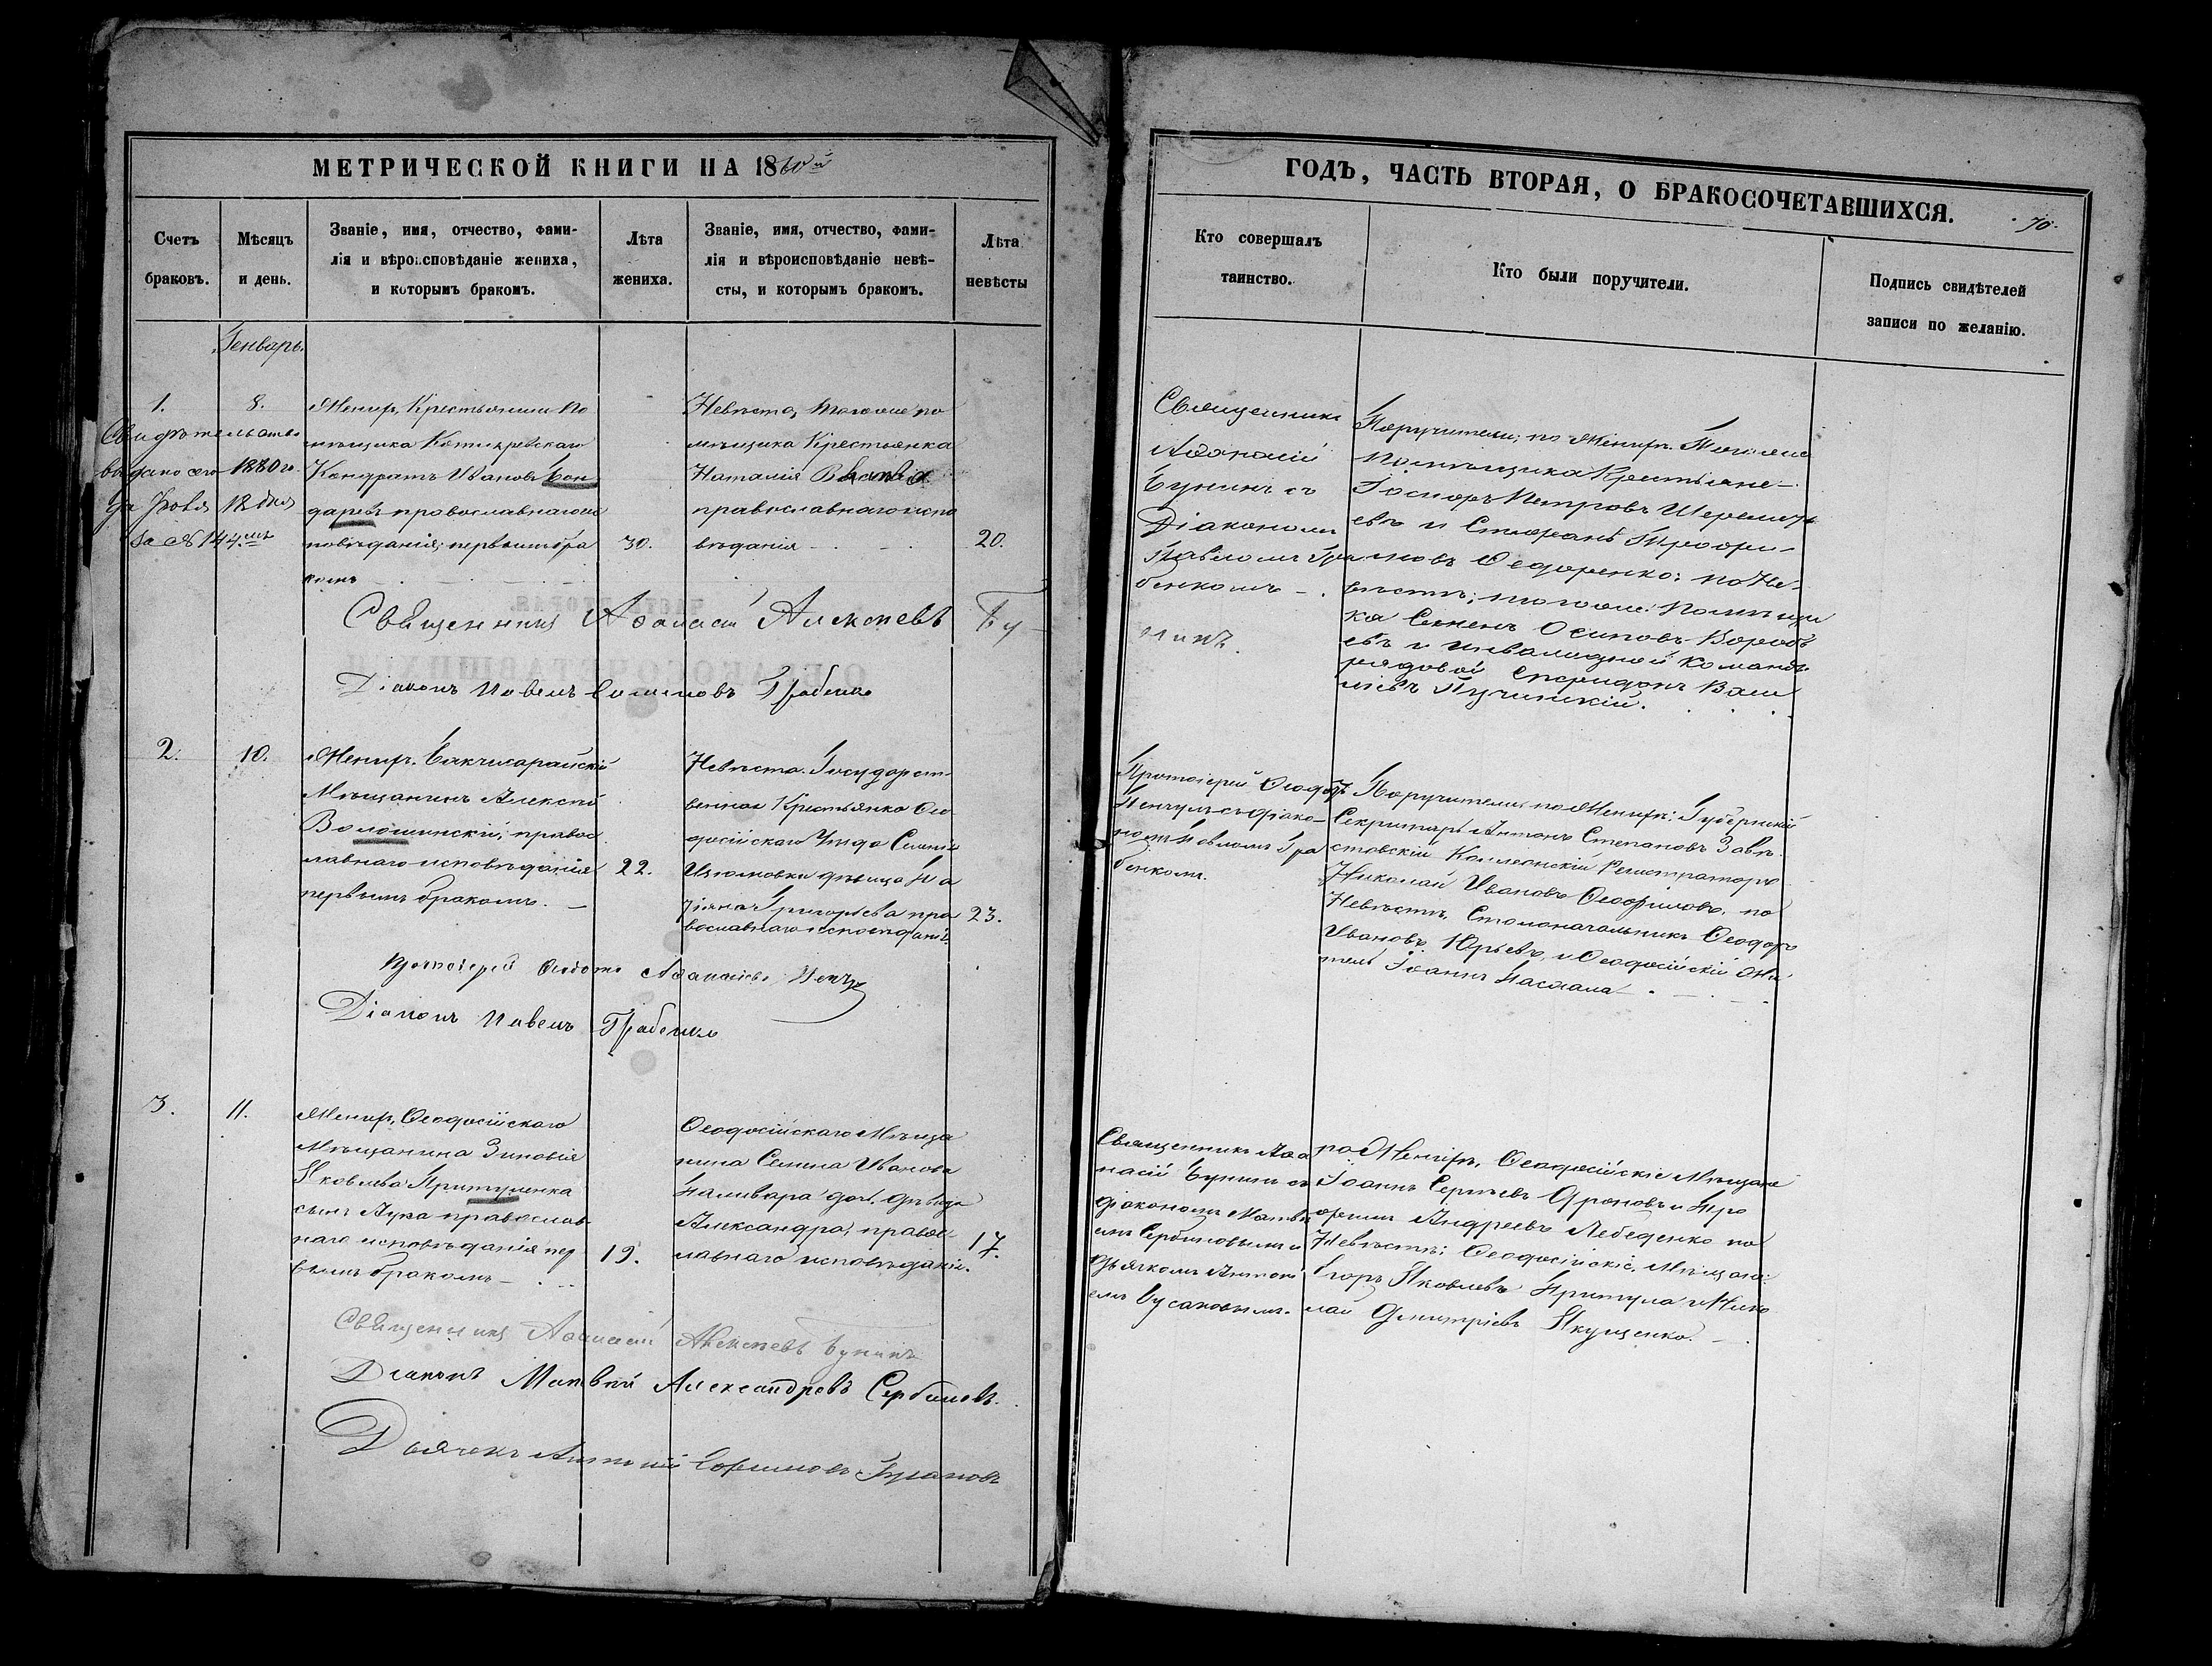 МЕТРИЧЕСКОЙ КНИГИ НА 1860й
Счетъ
браковъ.
Мѣсяцъ
и день.
Званіе, имя, отчество, фами-
лія и вѣроисповѣданіе жениха,
и которымъ бракомъ.
Лѣта
жениха.
Званіе, имя, отчество, фами-
лія и вѣроисповѣданіе невѣ-
сты, и которымъ бракомъ.
Лѣта
невѣсты
Генварь.
1.
Свидѣтельство
выдано сего 1880 го.
12 дня
за № 144
8.
Женихъ, Крестьянинъ По
мѣщика
Кондратъ Ивановъ Бон
даревъ православнаго ис
повѣданія; первымъ бра
комъ
30.
Невѣста, того же по
мѣщика Крестьянка
Наталія
православнаго испо
вѣданія
20.
Священникъ Аѳанасій Алексѣевъ Бу
нинъ.
Діаконъ Павелъ Семеновъ Грабенко
2.
10.
Женихъ. Бакчисарайскій
Мѣщанинъ Алексѣй
Волошинскій, правос
лавнаго исповѣданія
первымъ бракомъ.
22.
Невѣста. Государст-
венная Крестьянка Ѳео
досійскаго Уѣзда Селенія
Изюмовки дѣвица Та
тіяна Григорьева пра
вославнаго исповѣданія.
23.
Протоіерей Ѳеодотъ Аѳанасіевъ
Діаконъ Павелъ Грабенко
3.
11.
Женихъ, Ѳеодосійскаго
Мѣщанина Зиновія
Яковлева Притуленка
сынъ Лука православ
наго исповѣданія пер
вымъ бракомъ
19.
Ѳеодосійскаго Мѣща
нина Семена Иванова
дочь дѣвица
Александра, правос
лавнаго исповѣданія.
17.
Священникъ Аѳанасій Алексѣевъ Бунинъ
Діаконъ Матвѣй Александровъ Сербиновъ.
Дьячекъ Антоній Гусаковъ
ГОДЪ, ЧАСТЬ ВТОРАЯ, О БРАКОСОЧЕТАВШИХСЯ.
70.
Кто совершалъ
таинство.
Кто были поручители.
Подпись свидѣтелей
записи по желанію.
Священникъ
Аѳанасій
Бунинъ съ
Діакономъ
Павломъ Гра
бенкомъ
Поручители; по Женихѣ. Того же
Помѣщика Крестьяне
Петровъ Шереметь
евъ и Стефанъ Трофи-
мовъ Ѳедоренко; по Не-
вѣстѣ; того же Помѣщи
ка Семенъ Осиповъ Вороб
евъ и инвалидной команды
рядовой Спиридонъ Васи
ліевъ Пучинскій.
Протоіерей Ѳеодотъ
съ діако-
номъ Павломъ Гра
бенкомъ.
Поручители по Женихѣ: Губернскій
Секретарь Антонъ Степановъ
Коллежскій Регистраторъ
Николай Ивановъ Ѳеофиловъ, по
Невѣстѣ, Столоначальникъ Ѳеодоръ
Ивановъ Юрьевъ и Ѳеодосійскій Жи
тель Іоаннъ
Священникъ Аѳа
насій Бунинъ съ
діакономъ Матвѣ
емъ Сербиновымъ и
дьячкомъ Антоні
емъ Гусаковымъ.
по Женихѣ, Ѳеодосійскіе Мѣщане
Іоаннъ Сергѣевъ и Про
Андреевъ Лебеденко по
Невѣстѣ; Ѳеодосійскіе Мѣщане:
Егоръ Яковлевъ Притула и Нико
лай Дмитріевъ Якущенко.